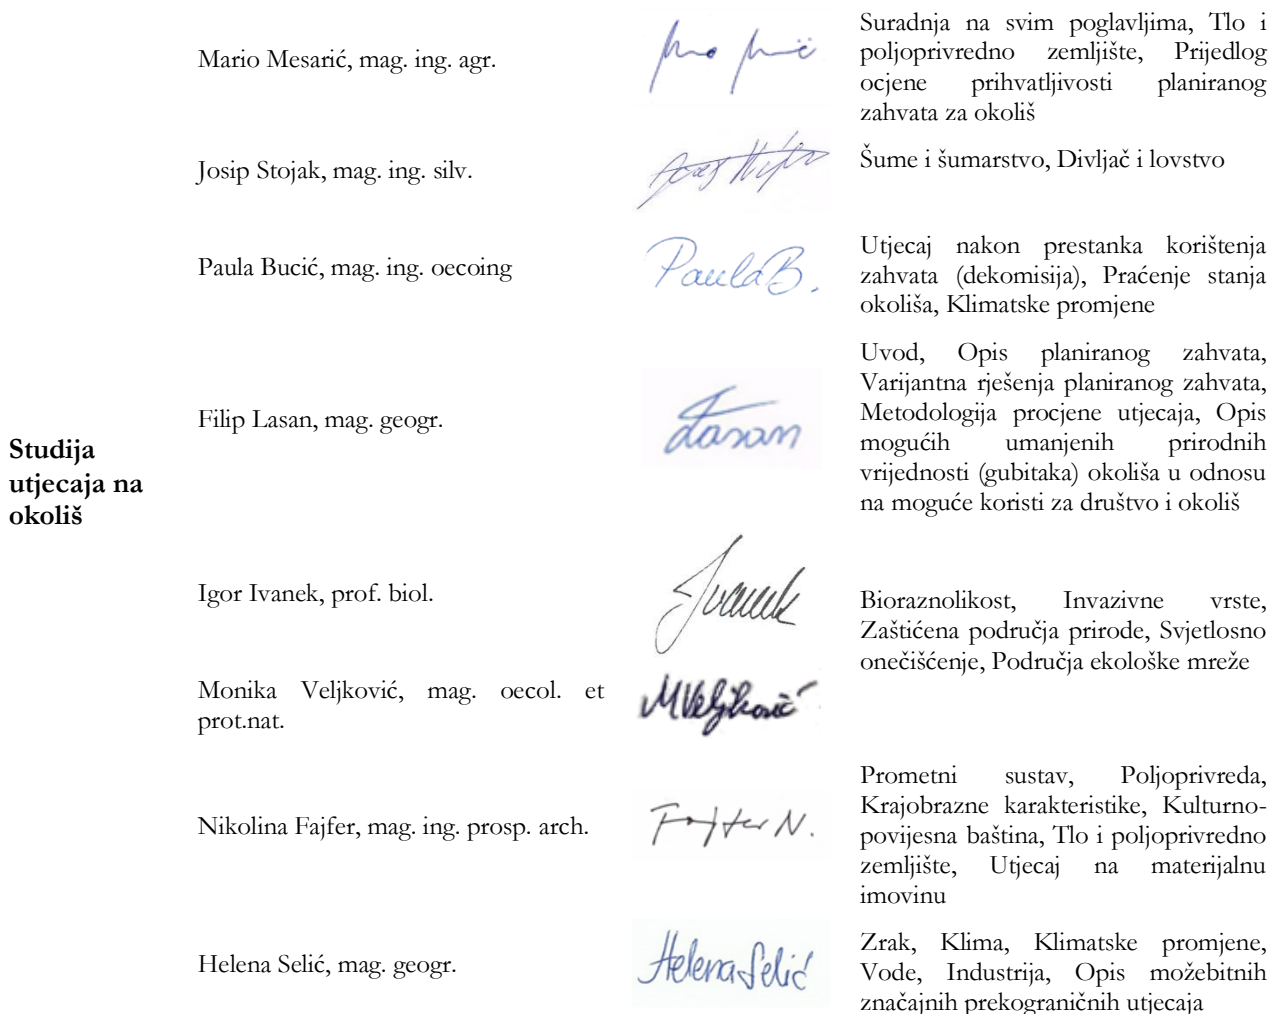 Mario Mesarić, mag. ing. agr.
Suradnja na svim poglavljima, Tlo i
poljoprivredno zemljište, Prijedlog
ocjene prihvatljivosti planiranog
zahvata za okoliš
Josip Stojak, mag. ing. silv.
Šume i šumarstvo, Divljač i lovstvo
Paula Bucić, mag. ing. oecoing
PaulaB.
Utjecaj nakon prestanka korištenja
zahvata (dekomisija), Praćenje stanja
okoliša, Klimatske promjene
Studija
utjecaja na
okoliš
Filip Lasan, mag. geogr.
Lasan
Uvod, Opis planiranog zahvata,
Varijantna rješenja planiranog zahvata,
Metodologija procjene utjecaja, Opis
mogućih umanjenih prirodnih
vrijednosti (gubitaka) okoliša u odnosu
na moguće koristi za društvo i okoliš
Igor Ivanek, prof. biol.
Ivanek
Monika Veljković, mag. oecol. et
prot.nat.
MVeljković
Bioraznolikost, Invazivne vrste,
Zaštićena područja prirode, Svjetlosno
onečišćenje, Područja ekološke mreže
Nikolina Fajfer, mag. ing. prosp. arch.
Fajfer N.
Prometni sustav, Poljoprivreda,
Krajobrazne karakteristike, Kulturno-
povijesna baština, Tlo i poljoprivredno
zemljište, Utjecaj na materijalnu
imovinu
Helena Selić, mag. geogr.
Helena Selić
Zrak, Klima, Klimatske promjene,
Vode, Industrija, Opis možebitnih
značajnih prekograničnih utjecaja